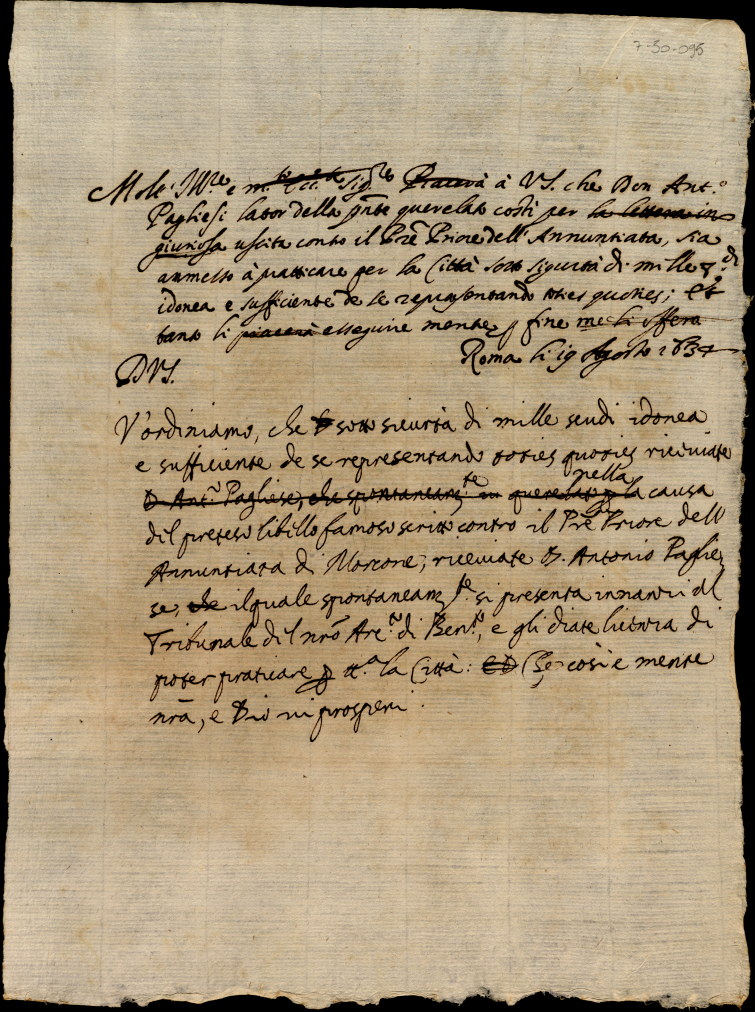 7-50-095
Molt' Ill.re e m. Ecc.te Sig.re Piacerà à VS. che Don Ant.o
Pagliesi lator della pñte querelato costì per la lettera in
giuriosa uscita contro il Prẽ Priore dell'Annuntiata, sia
ammesso à pratticare per la Città sotto sigurtà di mille di
idonea e sufficiente de se representando toties quoties; Et
tanto li piacerà esseguire mente fine me li offero
Roma li 19 Agosto 1634
DVS.
V'ordiniamo, che sotto sicurtà di mille scudi idonea
e sufficiente de se representando toties quoties riceviate
D. Ant.o Pagliese, che spontaneam.te querelato p la nella causa
del preteso libello famoso scritto contro il Prẽ Priore dell'
Annuntiata di Morcone, riceviate D. Antonio Paglie
se, che il quale spontaneam.te si presenta innanzi al
Tribunale del nrõ Are.o di Ben.to, e gli diate licentia di
poter praticare p tt.a la Città: Et D Che così è mente
nrã, e Dio vi prosperi.